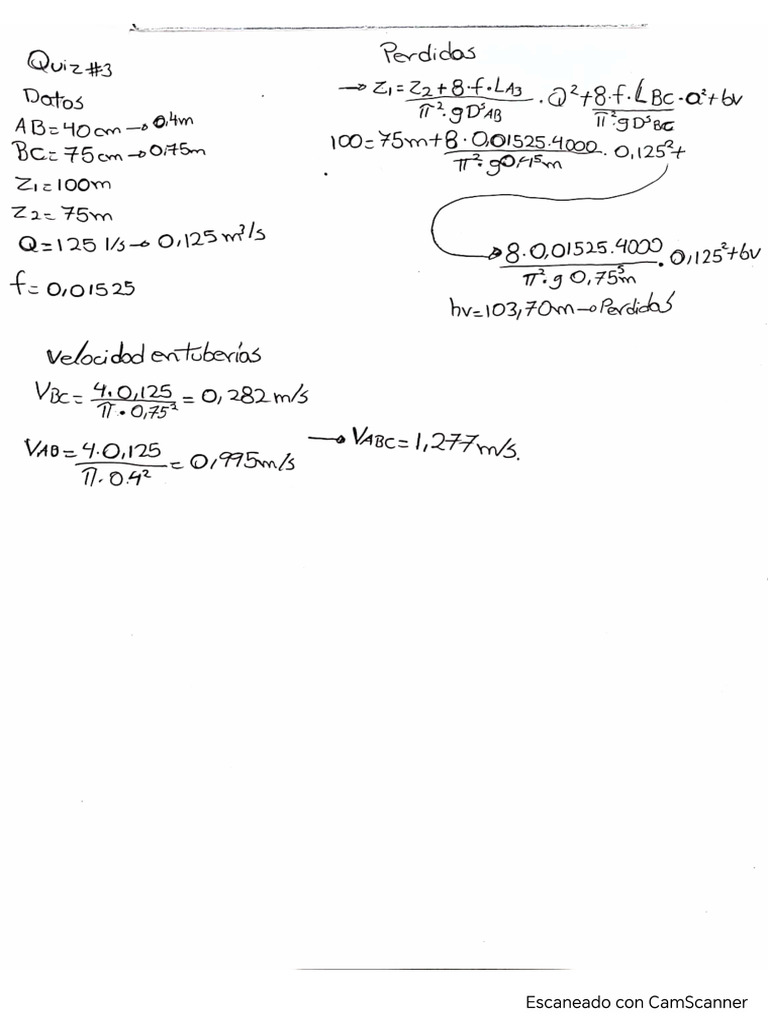 Quiz #3
Datos
AB = 40 cm → 0,4m
BC = 75 cm → 0,75m
Z1 = 100m
Z2 = 75m
Q = 125 l/s → 0,125 m³/s
f = 0,01525
Perdidas
→ Z1 = Z2 + 8·f·LAB / π²·g D⁵AB · Q² + 8·f·LBC / π²·g D⁵BC · Q² + hv
100 = 75m + 8·0,01525·4000 / π²·g 0,4⁵m · 0,125² +
→ 8·0,01525·4000 / π²·g 0,75⁵m · 0,125² + hv
hv = 103,70m → Perdidas
Velocidad en tuberías
VBC = 4·0,125 / π·0,75² = 0,282 m/s
VAB = 4·0,125 / π·0.4² = 0,995 m/s → VABC = 1,277 m/s.
Escaneado con CamScanner